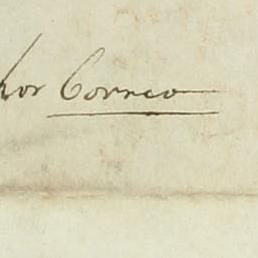 hor Correo